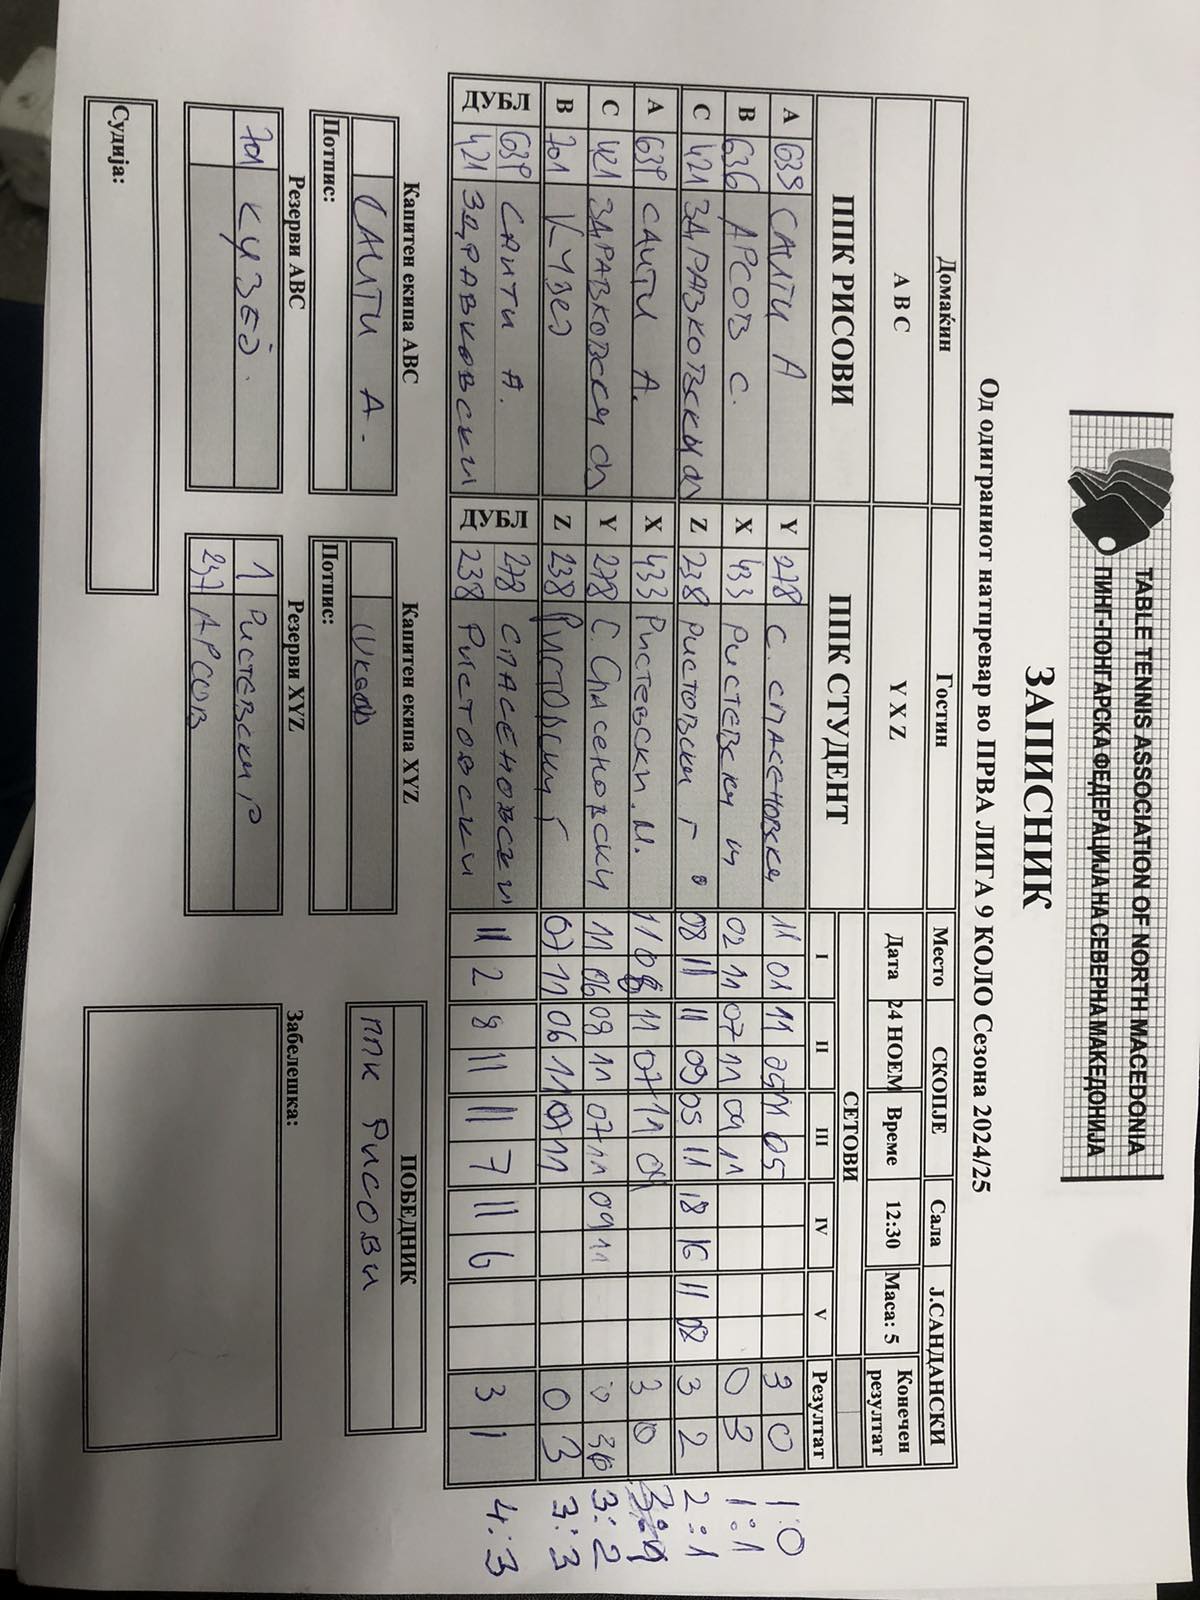 TABLE TENNIS ASSOCIATION OF NORTH MACEDONIA
ПИНГ-ПОНГАРСКА ФЕДЕРАЦИЈА НА СЕВЕРНА МАКЕДОНИЈА
ЗАПИСНИК
Од одиграниот натпревар во ПРВА ЛИГА 9 КОЛО Сезона 2024/25
Домаќин Гостин Место СКОПЈЕ Сала Ј.САНДАНСКИ
A B C Y X Z Дата 24 НОЕМ Време 12:30 Маса: 5 Конечен резултат
ППК РИСОВИ ППК СТУДЕНТ СЕТОВИ
I II III IV V Резултат
A 639 САИТИ А Y 278 С. СПАСЕНОВСКИ 11 01 11 05 11 05 3 0 1:0
B 636 АРСОВ С. X 433 РИСТЕВСКИ М 02 11 07 11 09 11 0 3 1:1
C 421 ЗДРАВКОВСКИ Z 238 РИСТОВСКИ Г 08 11 11 09 05 11 18 16 11 08 3 2 2:1
A 639 САИТИ А. X 433 РИСТЕВСКИ М. 11 08 11 07 11 09 3 0
C 421 ЗДРАВКОВСКИ Y 278 С. СПАСЕНОВСКИ 11 06 09 11 07 11 09 11 3:2
B 701 КУЗЕВ Z 238 РИСТОВСКИ Г 07 11 06 11 07 11 0 3 3:3
ДУБЛ 639 САИТИ А. ДУБЛ 278 СПАСЕНОВСКИ 11 2 8 11 11 7 11 6 3 1 4:3
421 ЗДРАВКОВСКИ 238 РИСТОВСКИ
Капитен екипа ABC Капитен екипа XYZ ПОБЕДНИК
САИТИ А. ППК РИСОВИ
Потпис: Потпис:
Резерви ABC Резерви XYZ Забелешка:
701 КУЗЕВ. 1 РИСТЕВСКИ Р
237 АРСОВ
Судија: